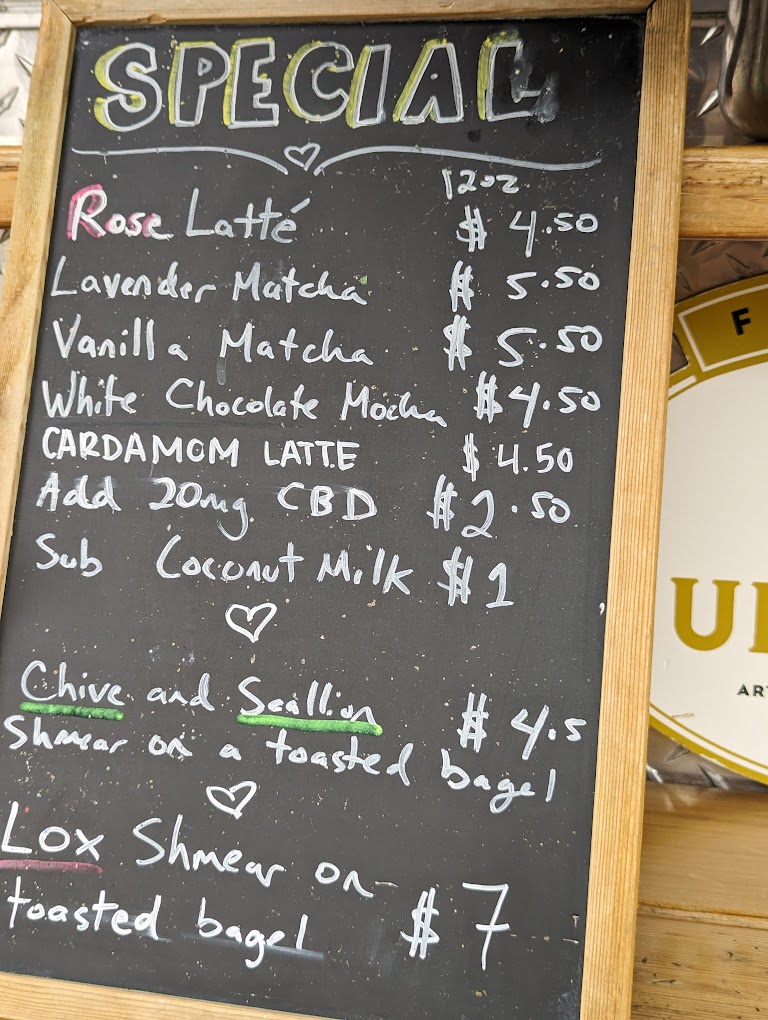 SPECIAL
12oz
Rose Latté $ 4.50
Lavender Matcha $ 5.50
Vanilla Matcha $ 5.50
White Chocolate Mocha $4.50
CARDAMOM LATTE $ 4.50
Add 20mg CBD $2.50
Sub Coconut Milk $1
Chive and Scallion $ 4.5
Shmear on a toasted bagel
Lox Shmear on
toasted bagel $7
F
U
AR